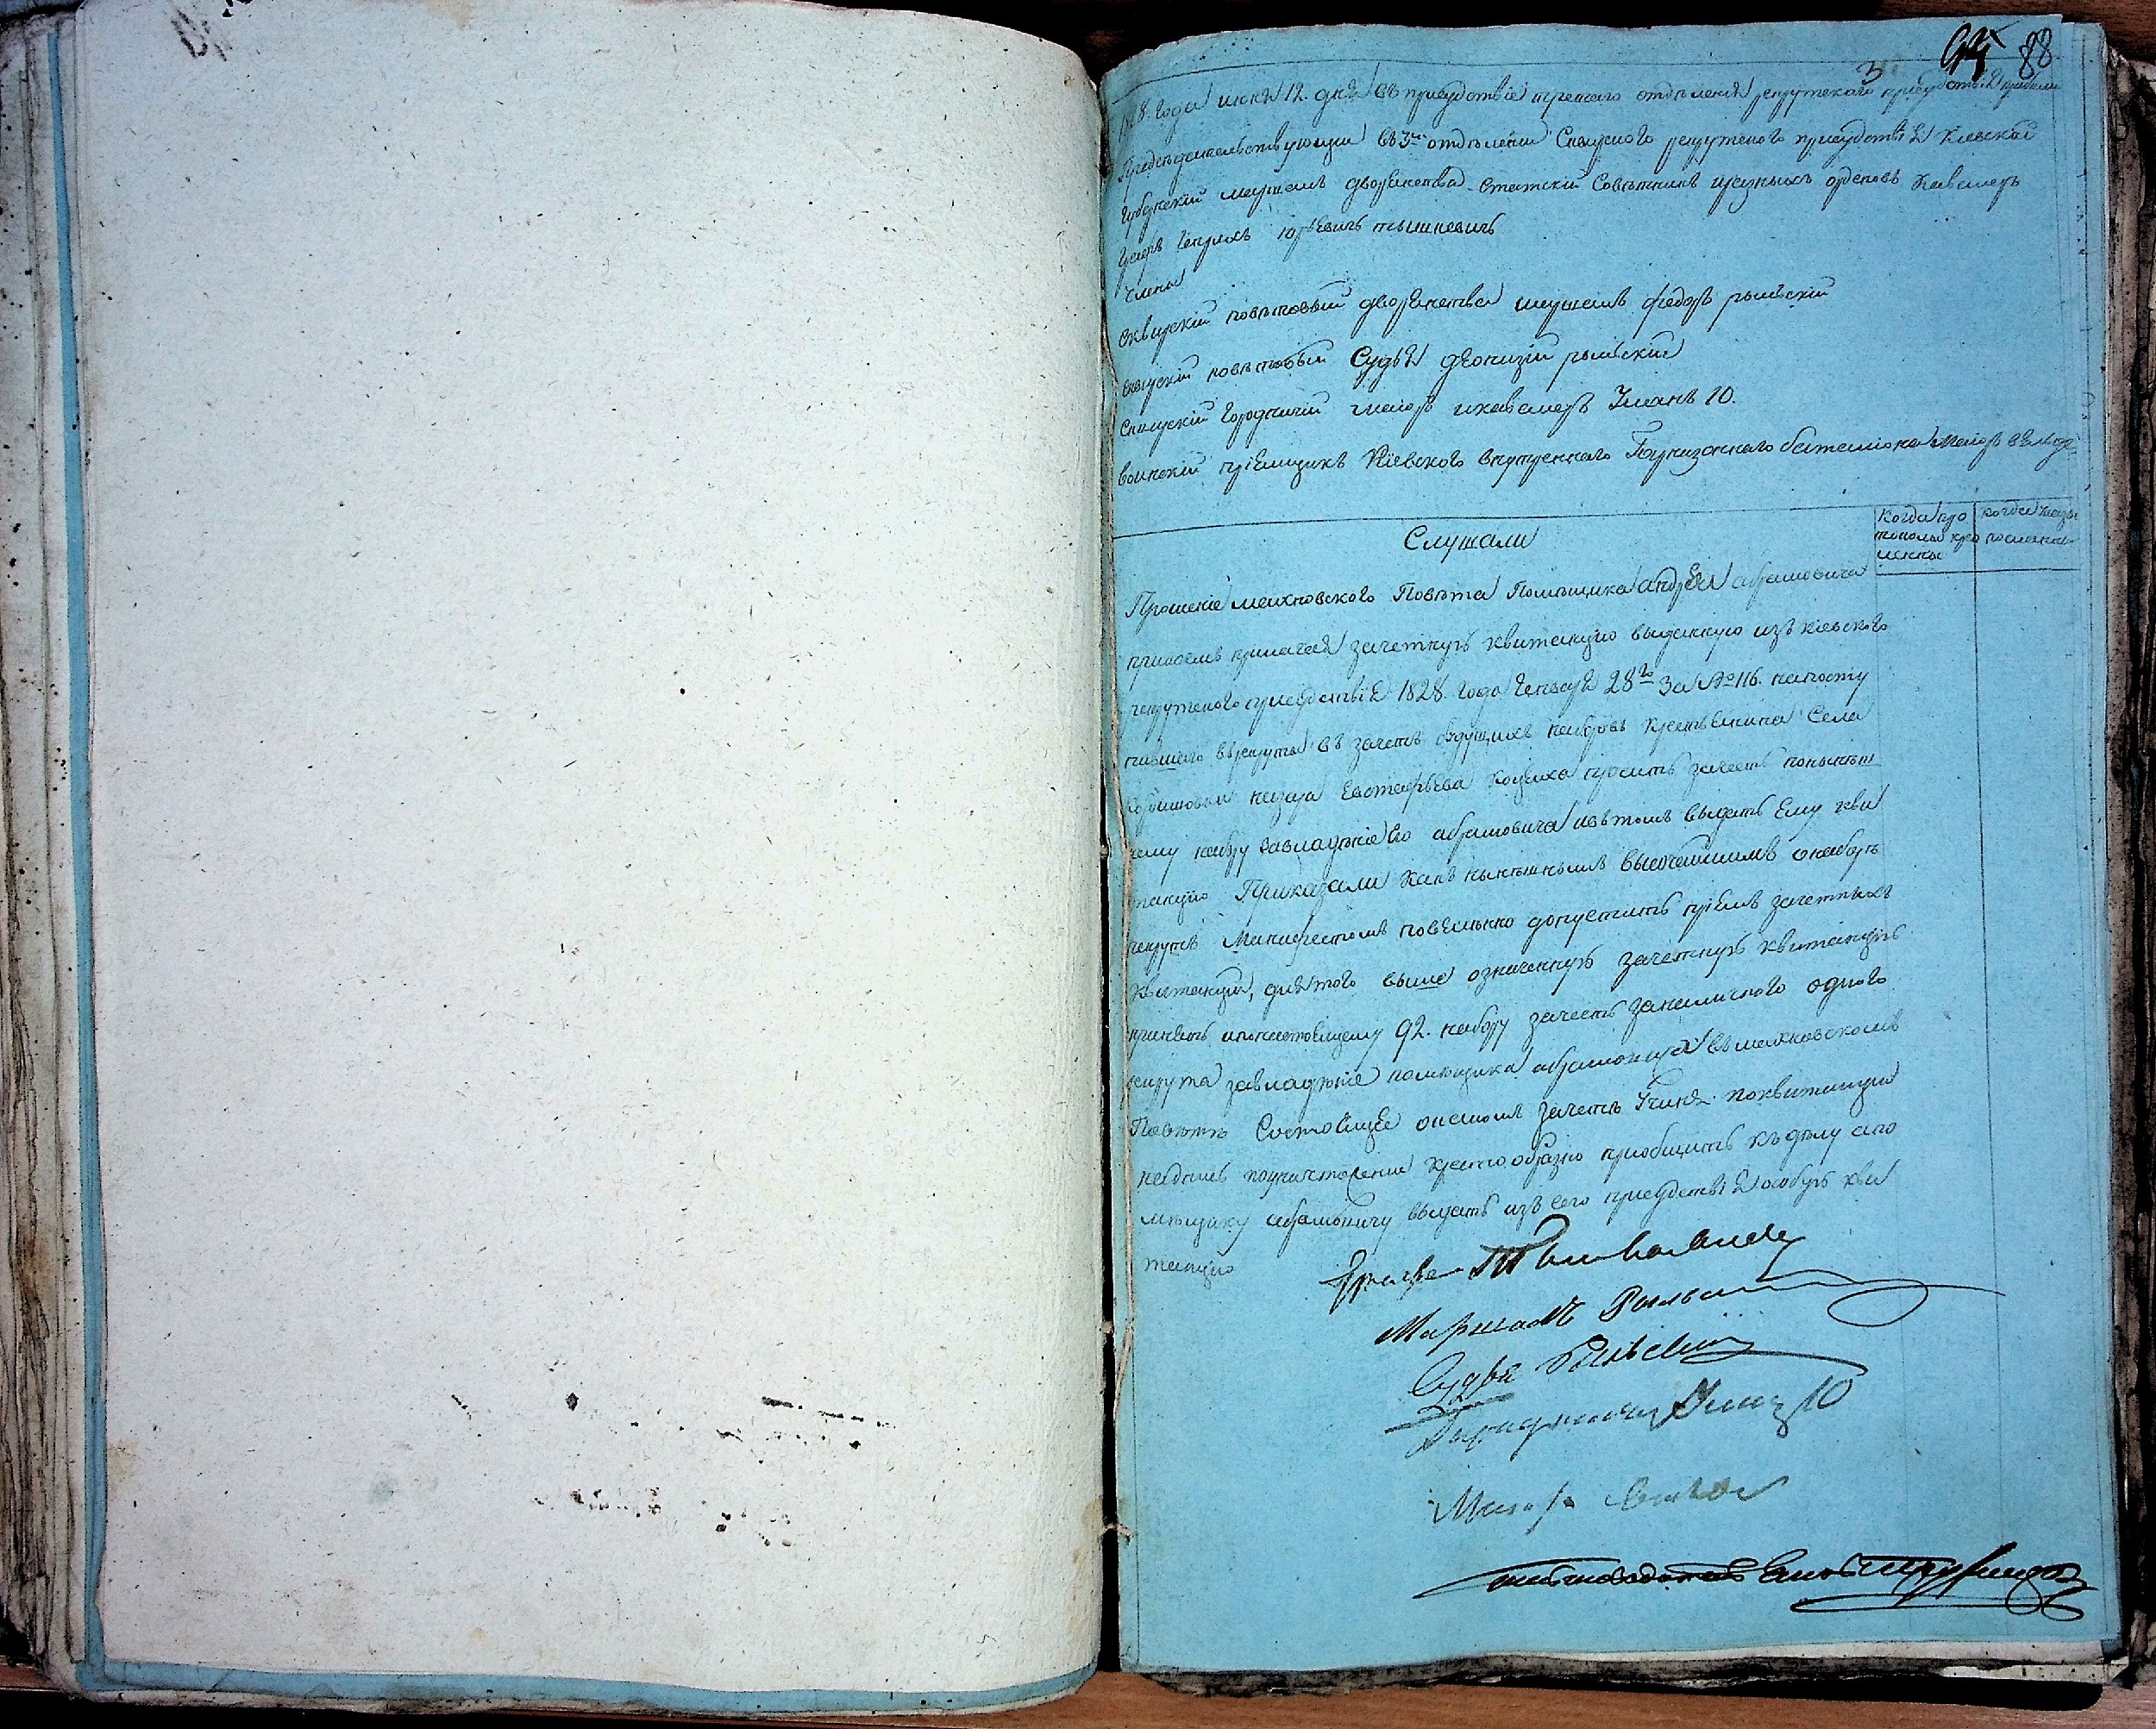 88
1828. года июня 12. дня въ присудствіе третаго отделенія рекрутскаго присудствія прибыли
Председательствующи въ 3м отделеніи Сквирского рекрутского присудствія Киевской
Губернскій маршалъ дворянства Статскій Советникъ и разныхъ орденовъ Кавалеръ
Графъ Генрихъ Юрьевичъ тышкевичъ
Члены
Сквирскій поветовый дворянства маршалъ федоръ рыльскій
Сквирскій поветовый Судья дионизій рыльскій
Сквирскій Городничій маіоръ и кавалеръ Уманъ 10.
воинскій пріемщикъ Кіевского внутренного Гарнизонного баталіона Маіоръ
Слушали
Когда про
токолы кре
плены
когда
Прошеніе махновского Повета Помещика андрея абрамовича
при коемъ прилагая зачетную квитанцію выданную изъ киевского
рекрутского присудствія 1828. года Генваря 28го За № 116. на посту
пившаго въ рекруты въ зачетъ будущихъ наборовъ крестьянина Села
назара Евстафьева Козака проситъ зачесть по нынеш
нему набору за владеніе Его абрамовича и въ томъ выдать Ему кви
танцію Приказали Какъ нынешнымъ высочайшимъ о наборе
рекрутъ Манифестомъ повелено допустить пріемъ зачетныхъ
квитанцій, для того выше означенную зачетную квитанцію
принять и по настоящему 92. набору зачесть за наличного одного
рекрута за владеніе помещика абрамовича въ махновскомъ
Повете Состоящее о чемъ зачете Учиня по квитанции
надпись по уничтоженіи крестообразно приобщить къ делу а по
мещику абрамовичу выдать изъ сего присудствія особую кви
танцію
Графъ Тышкевичъ
Маршалъ Рыльскій
Судья Рыльскій
Городничій Уманъ 10
Маіоръ